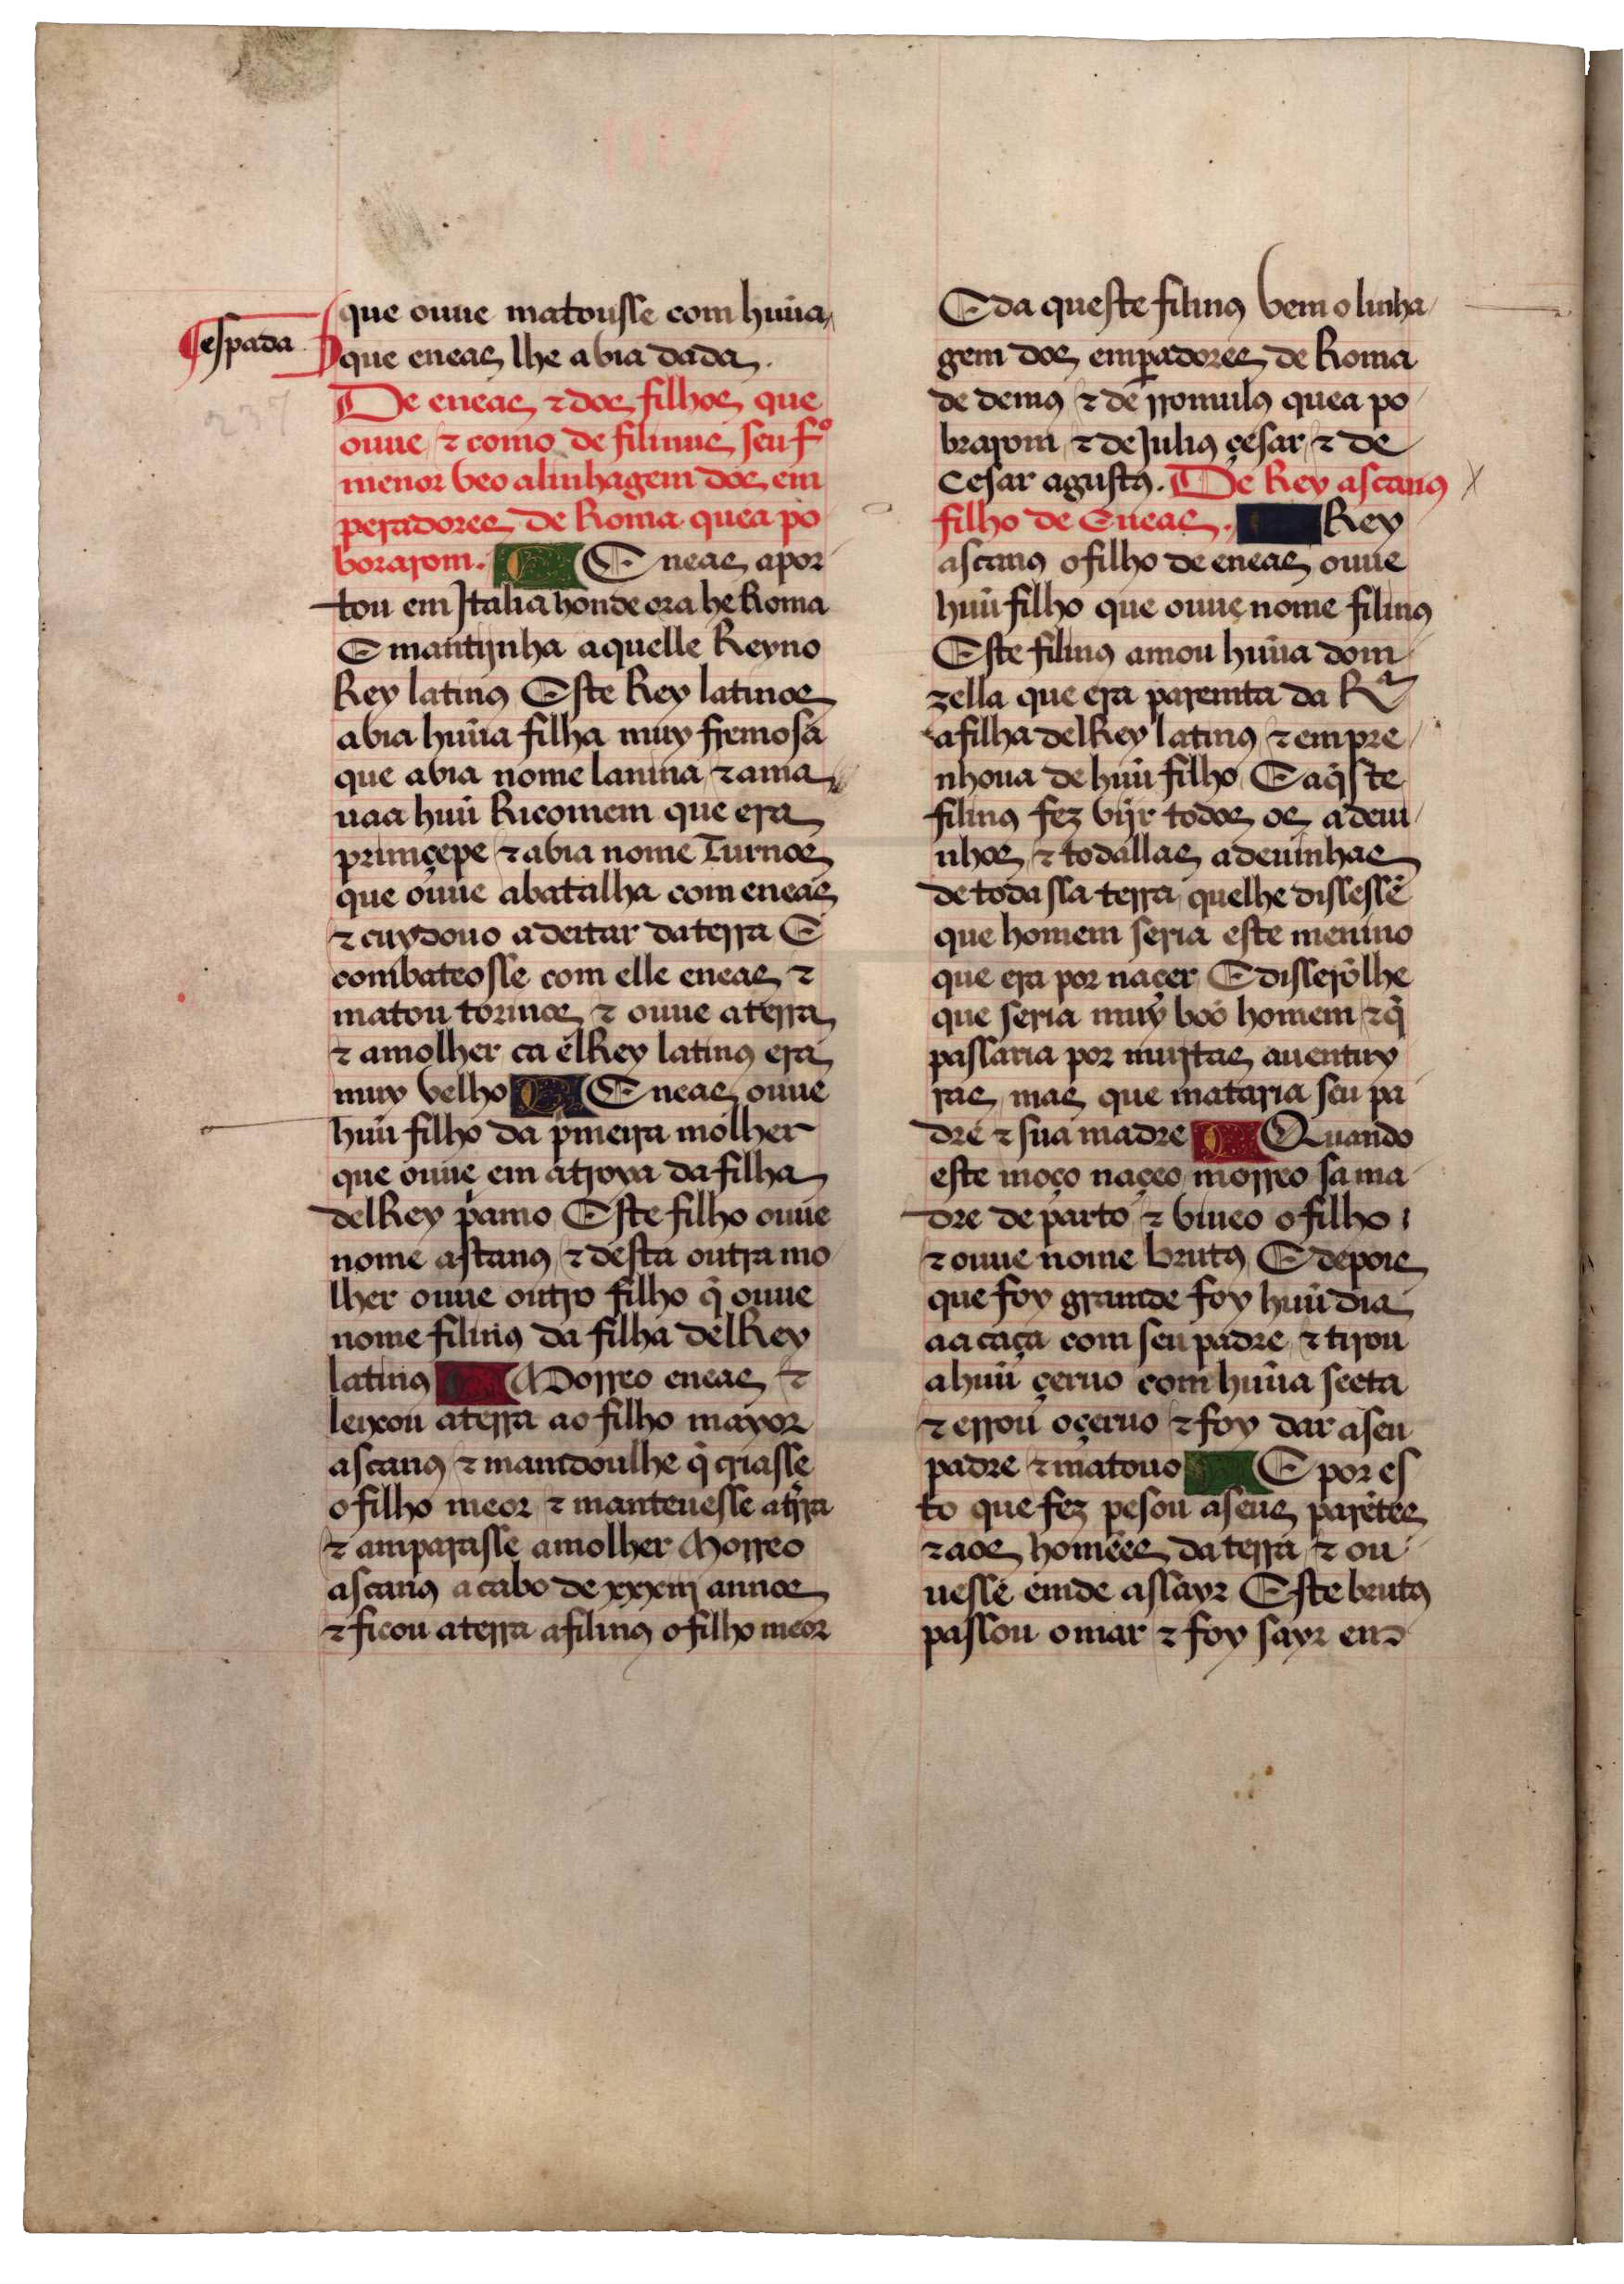 que ouue matousse com huũa
¶espada
que eneas lhe abia dada.
De eneas ⁊ dos filhos que
ouue ⁊ como de siluius seu fº
menor veo a linhagem dos em
peradores de Roma que a po
borarom.
Eneas apor
tou em Italia honde ora he Roma
E mantijnha aquelle Reyno
Rey latinꝯ Este Rey latinos
abia huũa filha muy fremosa
que abia nome lauina ⁊ ama
uaa huũ Ricomem que era
primçepe ⁊ abia nome Turnos
que ouue abatalha com eneas
⁊ cuydouo a deitar da terra E
combateosse com elle eneas ⁊
matou tornos ⁊ ouue aterra
⁊ amolher ca elRey latinꝯ era
muy velho Eneas ouue
huũ filho da p̃meira molher
que ouue em atroya da filha
delRey p̃amo Este filho ouue
nome astanꝯ ⁊ desta outra mo
lher ouue outro filho q̃ ouue
nome siluiꝯ da filha delRey
latinꝯ Morreo eneas ⁊
leixou aterra ao filho mayor
ascanꝯ ⁊ mamdoulhe q̃ criasse
o filho meor ⁊ manteuesse at̃rra
⁊ amparasse amolher Morreo
ascanꝯ acabo de xxxiij annos
⁊ ficou aterra a siluiꝯ o filho meor
E da queste siluiꝯ vem o linha
gem dos emp̱adores de Roma
de demꝯ ⁊ de rromulꝯ que a po
brarom ⁊ de Juliꝯ çesar ⁊ de
Cesar agustꝯ. De Rey ascanꝯ
filho de Eneas. Rey
ascanꝯ o filho de eneas ouue
huũ filho que ouue nome siluiꝯ
Este siluiꝯ amou huũa dom
zella que era paremta da Rᵃ
a filha delRey latinꝯ ⁊ empre
nhoua de huũ filho E aq̃ste
siluiꝯ fez vijr todos os adeui
nhos ⁊ todallas adeuinhas
de toda ssa terra que lhe dissessẽ
que homem seria este menino
que era por naçer E disserõlhe
que seria muy boõ homem ⁊ q̃
passaria por muitas auentuy
ras mas que mataria seu pa
dre ⁊ sua madre Quando
este moço naçeo morreo sa ma
dre de parto ⁊ viueo o filho
⁊ ouue nome brutꝯ E depois
que foy gramde foy huũ dia
aa caça com seu padre ⁊ tirou
a huũ çeruo com huũa seeta
⁊ errou o çeruo ⁊ foy dar a seu
padre ⁊ matouo E por es
to que fez pesou a seus parẽtes
⁊ aos homẽes da terra ⁊ ou
uesse emde assayr Este brutꝯ
passou o mar ⁊ foy sayr em